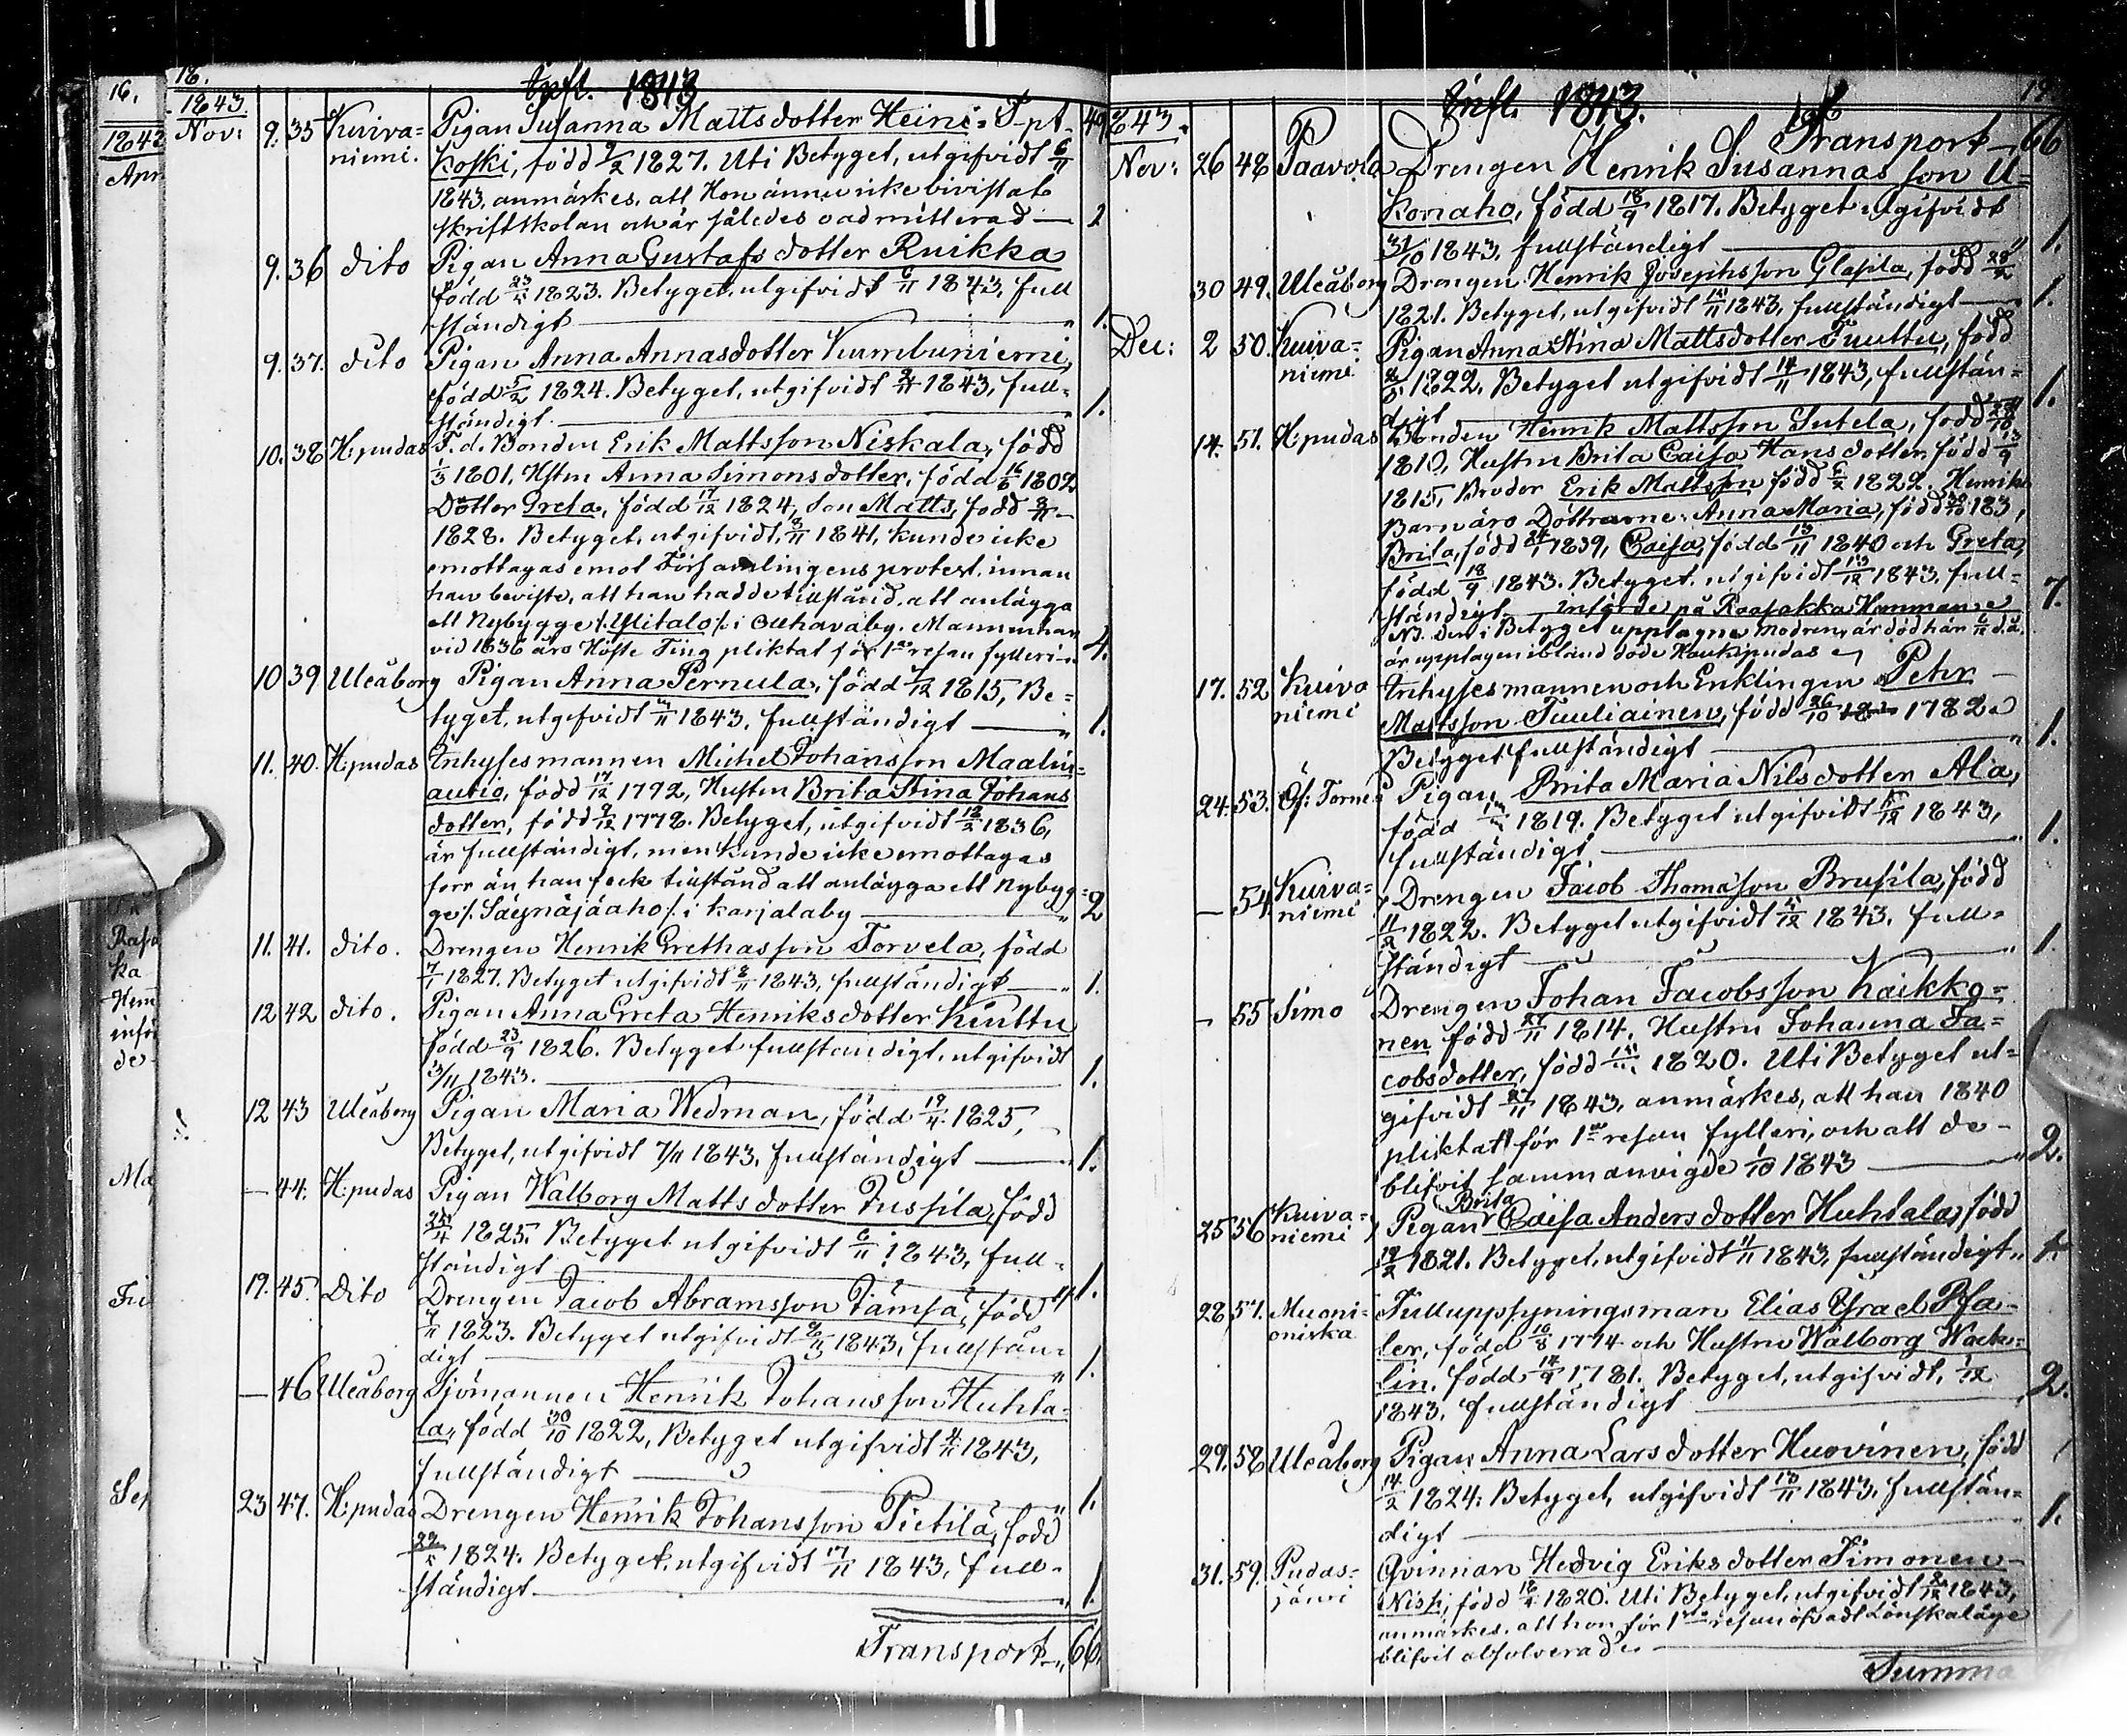 16.
1842
Apri
Rasa
ka
Hem
infö
de
Ma
Fri
Sep
18.
Infl. 1843
1843
Nov: 9. 35 Kuiva= Pigan Susanna Mattsdotter Heini= T-pt 49
niemi. koski, född 9/2 1827. Uti Betyget, utgifvidt 6/11
1843, anmärkes, att Hon ännu icke bivistat
skriftskolan och är således oadmitterad — 1
9. 36 dito Pigan Anna Gustafsdotter Ruikka
född 23/5 1823. Betyget, utgifvidt 6/11 1843, full
ständigt — " 1.
9. 37. dito Pigan Anna Annasdotter Kumbuniemi,
född 5/2 1824. Betyget, utgifvidt 2/11 1843, full=
ständigt. — 1.
10. 38 H:pudas F.d. Bonden Erik Mattsson Niskala, född
1/3 1801, Hstn Anna Simonsdotter, född 16/6 1802
Dotter Greta, född 17/12 1824, Son Matts, född
1828. Betyget, utgifvidt, 8/11 1841, kunde icke
emottagas emot Församlingens protest, innan
han beviste, att han hadde tillstånd att anlägga
ett Nybygge /:Ylitalo:/ i Olhavaby. Mannen har
vid 1836 års Höste Ting pliktat för 1sta resan fylleri 4.
10 39 Uleåborg Pigan Anna Pernula, född 7/12 1815, Be=
tyget, utgifvidt 3/11 1843, fullständigt — " 1.
11. 40. H:pudas Inhysesmannen Michel Johansson Maalin=
autio, född 17/12 1792, Hustrn Brita Stina Johans
dotter, född 9/12 1778. Betyget, utgifvidt 18/2 1836,
är fullständigt, men kunde icke emottagas
förr än han feck tillstånd att anlägga ett nybyg=
ge /: Säynäjäaho :/ i karjalaby — " 2
11. 41. dito. Drengen Henrik Grethasson Torvela, född
7/1 1827. Betyget utgifvidt 8/11 1843, fullständigt — " 1.
12 42 dito. Pigan Anna Greta Henriksdotter Kinttu
född 23/9 1826. Betyget fullständigt, utgifvidt
3/11 1843. — 1.
12 43 Uleåborg Pigan Maria Wedman, född 19/4 1825,
Betyget, utgifvidt 7/11 1843, fullständigt — 1.
— 44. H:pudas Pigan Walborg Mattsdotter Jussila, född
1825. Betyget utgifvidt 6/11 1843, full=
ständigt — " 1.
19. 45. dito Drengen Jacob Abramsson Jämsä, född
7/11 1823. Betyget utgifvidt 1843, fullstän=
digt — " 1.
— 46 Uleåborg Sjömannen Henrik Johansson Huhta=
la, född 30/10 1822, Betyget utgifvidt 4/11 1843,
fullständigt — " 1.
23 47. H:pudas Drengen Henrik Johansson Pietilä, född
22/5 1824. Betyget, utgifvidt 17/11 1843, full=
ständigt. — " 1.
Transport — " 66.
19.
Infl. 1843.
1843. Transport — 66
Nov: 26 48 Paavola Drengen Henrik Susannasson U=
konaho, född 18/9 1817. Betyget utgifvidt
31/10 1843, fullständigt — " 1.
30 49. Uleåborg Drengen Henrik Josephsson Glasila, född 28/2
1821. Betyget, utgifvidt 1843, fullständigt — 1.
Dec: 2 50. Kuiva= Pigan Anna Stina Mattsdotter Tuuttu, född
niemi 1822, Betyget utgifvidt 14/11 1843, fullstän=
digt — " 1.
14. 51. H:pudas Bonden Henrik Mattsson Sutela, född
1810, Hustrn Brita Caisa Hansdotter, född 13/9
1815, Broder Erik Mattsson född 6/2 1822. Henriks
Barn äro Döttrarne: Anna Maria, född 183,
Brita, född 24/1 1839, Caisa, född 13/11 1840 och Greta,
född 18/9 1843. Betyget, utgifvidt 13/12 1843, full=
ständigt införde på Raasakka Hemman 7.
NB. den i Betyget upptagne modren, är död här d.å.
är upptagen ibland döde Haukipudas
17. 52 Kuiva Inhysesmannen och Enklingen Petr
niemi Mattsson Tuuliainen, född 26/10 1782.
Betyget fullständigt — " 1.
24. 53. Öf: Torneå Pigan Brita Maria Nilsdotter Ala,
född 1819. Betyget utgifvidt 1843,
fullständigt, — " 1.
— 54 Kuiva= Drengen Jacob Thomasson Brusila, född
niemi 11/2 1822. Betyget utgifvidt 4/12 1843, full=
ständigt — " 1.
— 55 Simo Drengen Johan Jacobsson Kaikko=
nen född 27/11 1814. Hustrn Johanna Ja=
cobsdotter, född 1820. Uti Betyget ut=
gifvidt 27/11 1843, anmärkes, att han 1840
pliktat för 1sta resan fylleri, och att de
blifvit sammanvigde 1/10 1843 — " 2.
25 56 Kuiva= Pigan Brita Caisa Andersdotter Huhtala, född
niemi 19/2 1821. Betyget, utgifvidt 11/11 1843, fullständigt " 1.
28 57. Muoni= Tulluppsyningsman Elias Israel Pfa=
oniska ler, född 16/8 1774 och Hustrn Walborg Wack=
lin, född 14/4 1781. Betyget, utgifvidt, 1/12
1843, fullständigt — 2.
29. 58 Uleåborg Pigan Anna Larsdotter Huovinen, född
14/2 1824; Betyget, utgifvidt 13/11 1843, fullstän=
digt — " 1.
31. 59. Pudas= Qvinnan Hedvig Eriksdotter Simonen=
järvi Nisk, född 18/4 1820. Uti Betyget, utgifvidt 1843,
anmärkes, att hon för 1sta resan öfvadt Lönskaläge
blifvit absolverad. — 1
Summa